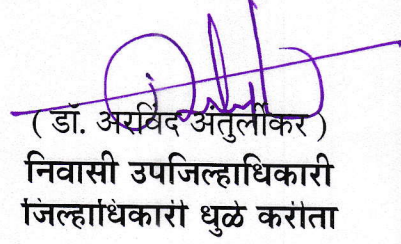 ( डॉ. अरविंद अंतुर्लीकर )
निवासी उपजिल्हाधिकारी
जिल्हाधिकारी धुळे करीता